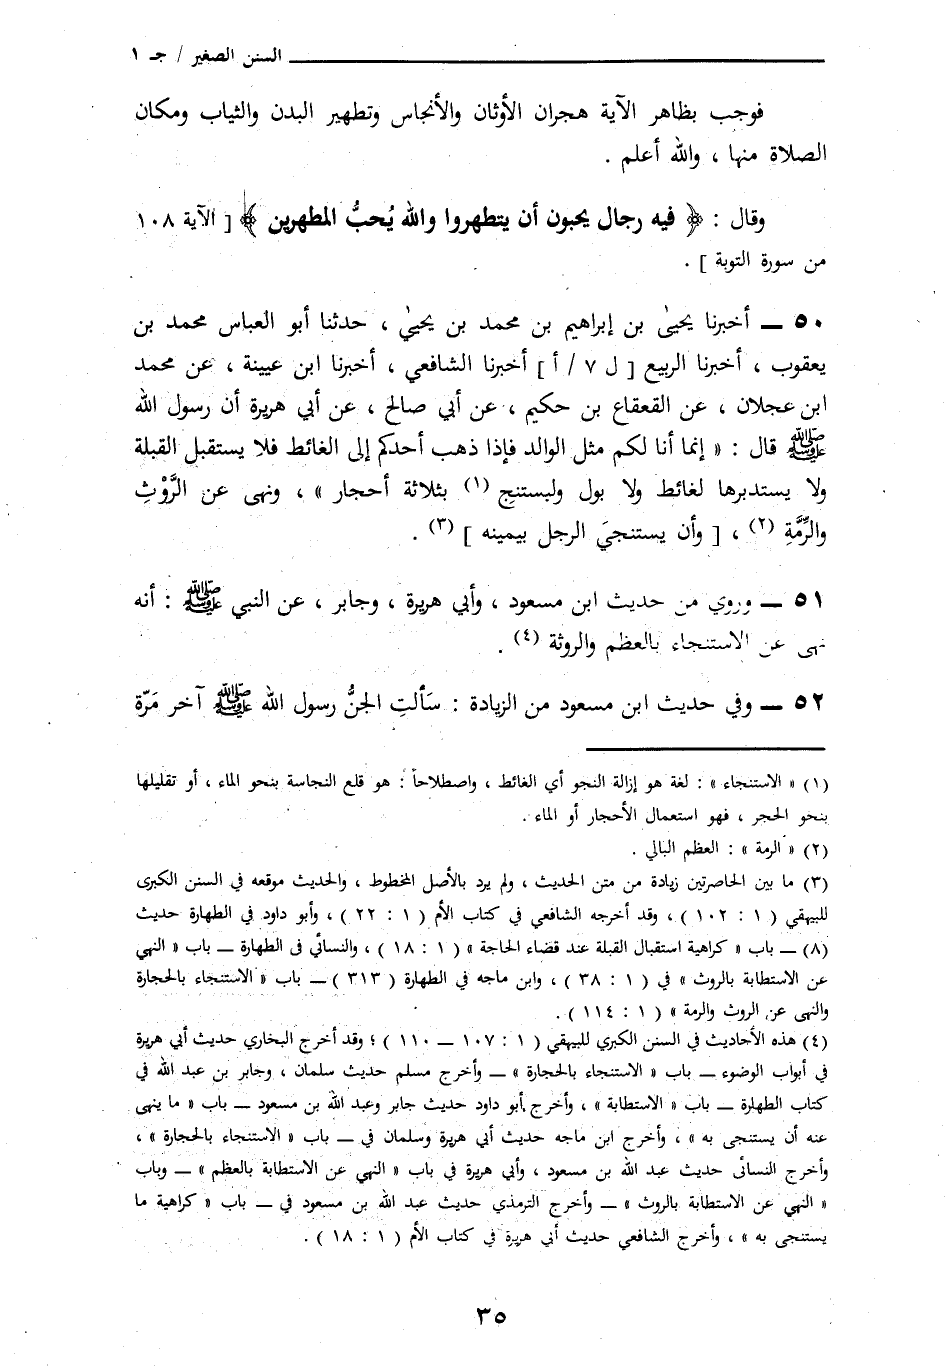 السنن الصغير / جـ ١
فوجب بظاهر الآية هجران الأوثان والأنجاس وتطهير البدن والثياب ومكان
الصلاة منها ، والله أعلم .
وقال : ﴿ فيه رجال يحبون أن يتطهروا والله يُحبُّ المطهرين ﴾ [ الآية ١٠٨
من سورة التوبة ] .
٥٠ ــ أخبرنا يحيىٰ بن إبراهيم بن محمد بن يحيىٰ ، حدثنا أبو العباس محمد بن
يعقوب ، أخبرنا الربيع [ ل ٧ / أ ] أخبرنا الشافعي ، أخبرنا ابن عيينة ، عن محمد
ابن عجلان ، عن القعقاع بن حكيم ، عن أبي صالح ، عن أبي هريرة أن رسول الله
ﷺ قال : « إنما أنا لكم مثل الوالد فإذا ذهب أحدكم إلى الغائط فلا يستقبل القبلة
ولا يستدبرها لغائط ولا بول وليستنج (١) بثلاثة أحجار » ، ونهى عن الرَّوْثِ
والرِّمَّةِ (٢) ، [ وأن يستنجيَ الرجل بيمينه ] (٣) .
٥١ ــ وروي من حديث ابن مسعود ، وأبي هريرة ، وجابر ، عن النبي ﷺ : أنه
نهى عن الاستنجاء بالعظم والروثة (٤) .
٥٢ ــ وفي حديث ابن مسعود من الزيادة : سَألتِ الجنُّ رسول الله ﷺ آخر مَرّة
(١) « الاستنجاء » : لغة هو إزالة النجو أي الغائط ، واصطلاحاً : هو قلع النجاسة بنحو الماء ، أو تقليلها
بنحو الحجر ، فهو استعمال الأحجار أو الماء .
(٢) « الرمة » : العظم البالي .
(٣) ما بين الحاصرتين زيادة من متن الحديث ، ولم يرد بالأصل المخطوط ، والحديث موقعه في السنن الكبرى
للبيهقي ( ١ : ١٠٢ ) ، وقد أخرجه الشافعي في كتاب الأم ( ١ : ٢٢ ) ، وأبو داود في الطهارة حديث
(٨) ــ باب « كراهية استقبال القبلة عند قضاء الحاجة » ( ١ : ١٨ ) ، والنسائي فى الطهارة ــ باب « النهي
عن الاستطابة بالروث » في ( ١ : ٣٨ ) ، وابن ماجه في الطهارة ( ٣١٣ ) ــ باب « الاستنجاء بالحجارة
والنهى عن الروث والرمة » ( ١ : ١١٤ ) .
(٤) هذه الأحاديث في السنن الكبري للبيهقي ( ١ : ١٠٧ ــ ١١٠ ) ؛ وقد أخرج البخاري حديث أبي هريرة
في أبواب الوضوء ــ باب « الاستنجاء بالحجارة » ــ وأخرج مسلم حديث سلمان ، وجابر بن عبد الله في
كتاب الطهارة ــ باب « الاستطابة » ، وأخرج أبو داود حديث جابر وعبد الله بن مسعود ــ باب « ما ينهى
عنه أن يستنجى به » ، وأخرج ابن ماجه حديث أبي هريرة وسلمان في ــ باب « الاستنجاء بالحجارة » ،
وأخرج النسائى حديث عبد الله بن مسعود ، وأبي هريرة في باب « النهي عن الاستطابة بالعظم » ــ وباب
« النهي عن الاستطابة بالروث » ــ وأخرج الترمذي حديث عبد الله بن مسعود في ــ باب « كراهية ما
يستنجى به » ، وأخرج الشافعي حديث أبي هريرة في كتاب الأم ( ١ : ١٨ ) .
٣٥